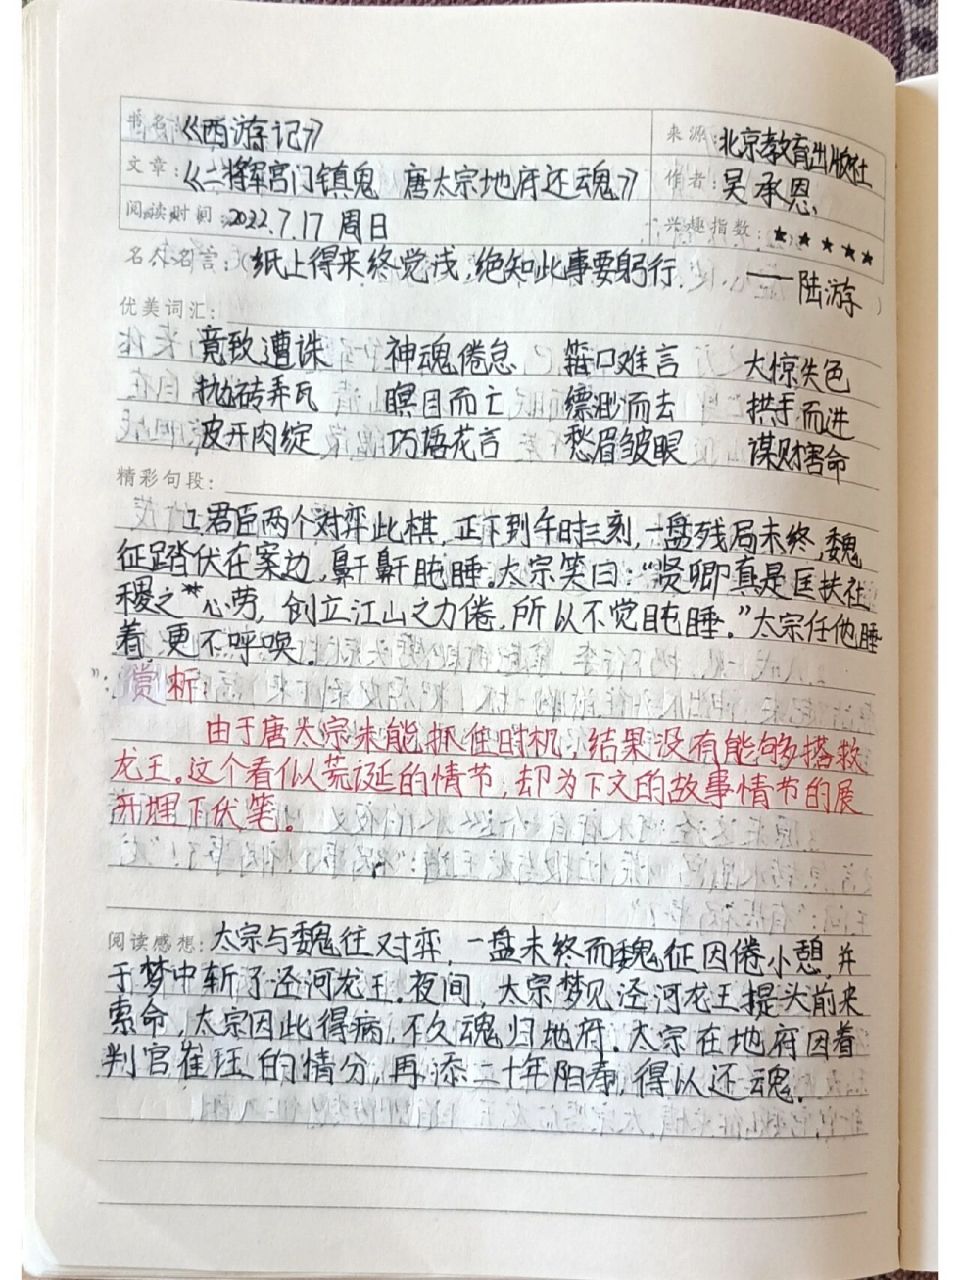 书名：《西游记》
来源：北京教育出版社
文章：《二将军宫门镇鬼 唐太宗地府还魂》
作者：吴承恩
阅读时间：2022.7.17 周日
兴趣指数：★★★★★
名人名言：纸上得来终觉浅，绝知此事要躬行.
——陆游
优美词汇：
竟致遭诛 神魂倦怠 箝口难言 大惊失色
抛砖弄瓦 瞑目而亡 缥渺而去 拱手而进
皮开肉绽 巧语花言 愁眉皱眼 谋财害命
精彩句段：
1.君臣两个对弈此棋，正下到午时三刻，一盘残局未终，魏
征踏伏在案边，鼾鼾盹睡。太宗笑曰：“贤卿真是匡扶社
稷之心劳，创立江山之力倦，所以不觉盹睡。”太宗任他睡
着，更不呼唤.
赏析：
由于唐太宗未能抓住时机，结果没有能够搭救
龙王。这个看似荒诞的情节，却为下文的故事情节的展
开埋下伏笔。
阅读感想：太宗与魏征对弈，一盘未终而魏征因倦小憩，并
于梦中斩了泾河龙王.夜间，太宗梦见泾河龙王提头前来
索命，太宗因此得病，不久魂归地府.太宗在地府因着
判官崔珏的情分，再添二十年阳寿，得以还魂.